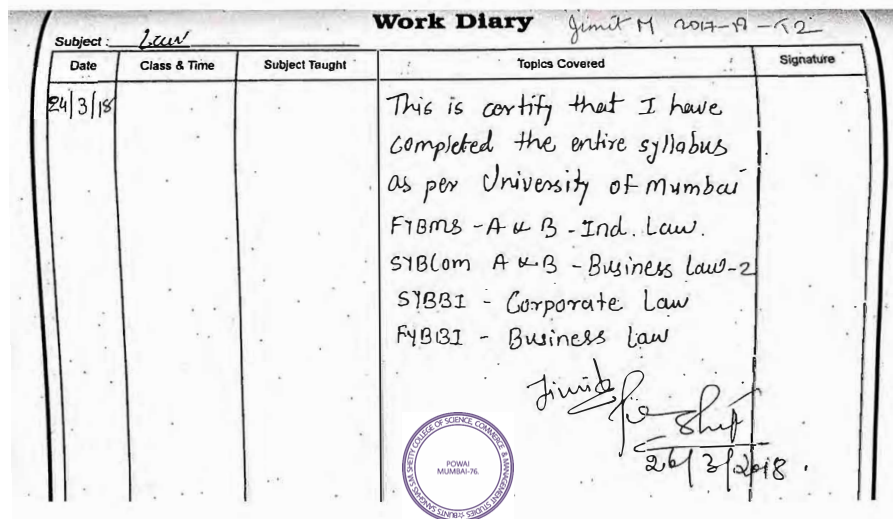 Work Diary Jimit M 2017-18 - T2
Subject : Law
Date Class & Time Subject Taught Topics Covered Signature
24/3/18 This is certify that I have
completed the entire syllabus
as per University of Mumbai
FYBMS - A & B - Ind. Law.
SYBCom A & B - Business Law-2
SYBBI - Corporate Law
FYBBI - Business Law
Jimit
26/3/2018.
BUNTS SANGHA'S S.M. SHETTY COLLEGE OF SCIENCE, COMMERCE & MANAGEMENT STUDIES
POWAI
MUMBAI-76.